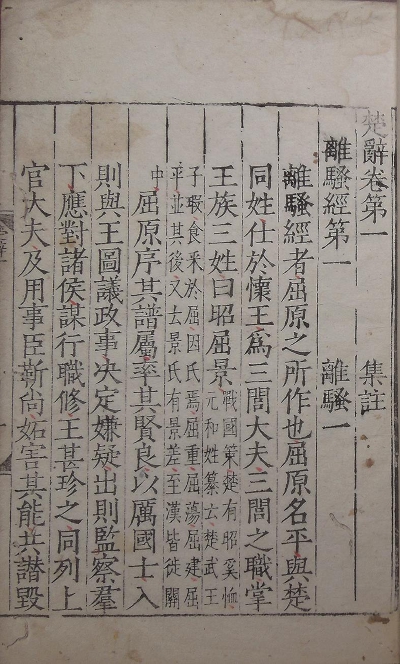 楚辭卷第一 集註
離騷經第一 離騷一
離騷經者屈原之所作也屈原名平與楚
同姓仕於懷王爲三閭大夫三閭之職掌
王族三姓曰昭屈景戰國策楚有昭奚恤元和姓纂云楚武王
子瑕食采於屈因氏焉屈重屈蕩屈建屈平並其後又云景氏有景差至漢皆徙關
中屈原序其譜屬率其賢良以厲國士入
則與王圖議政事決定嫌疑出則監察羣
下應對諸侯謀行職修王甚珍之同列上
官大夫及用事臣靳尚妬害其能共譖毀